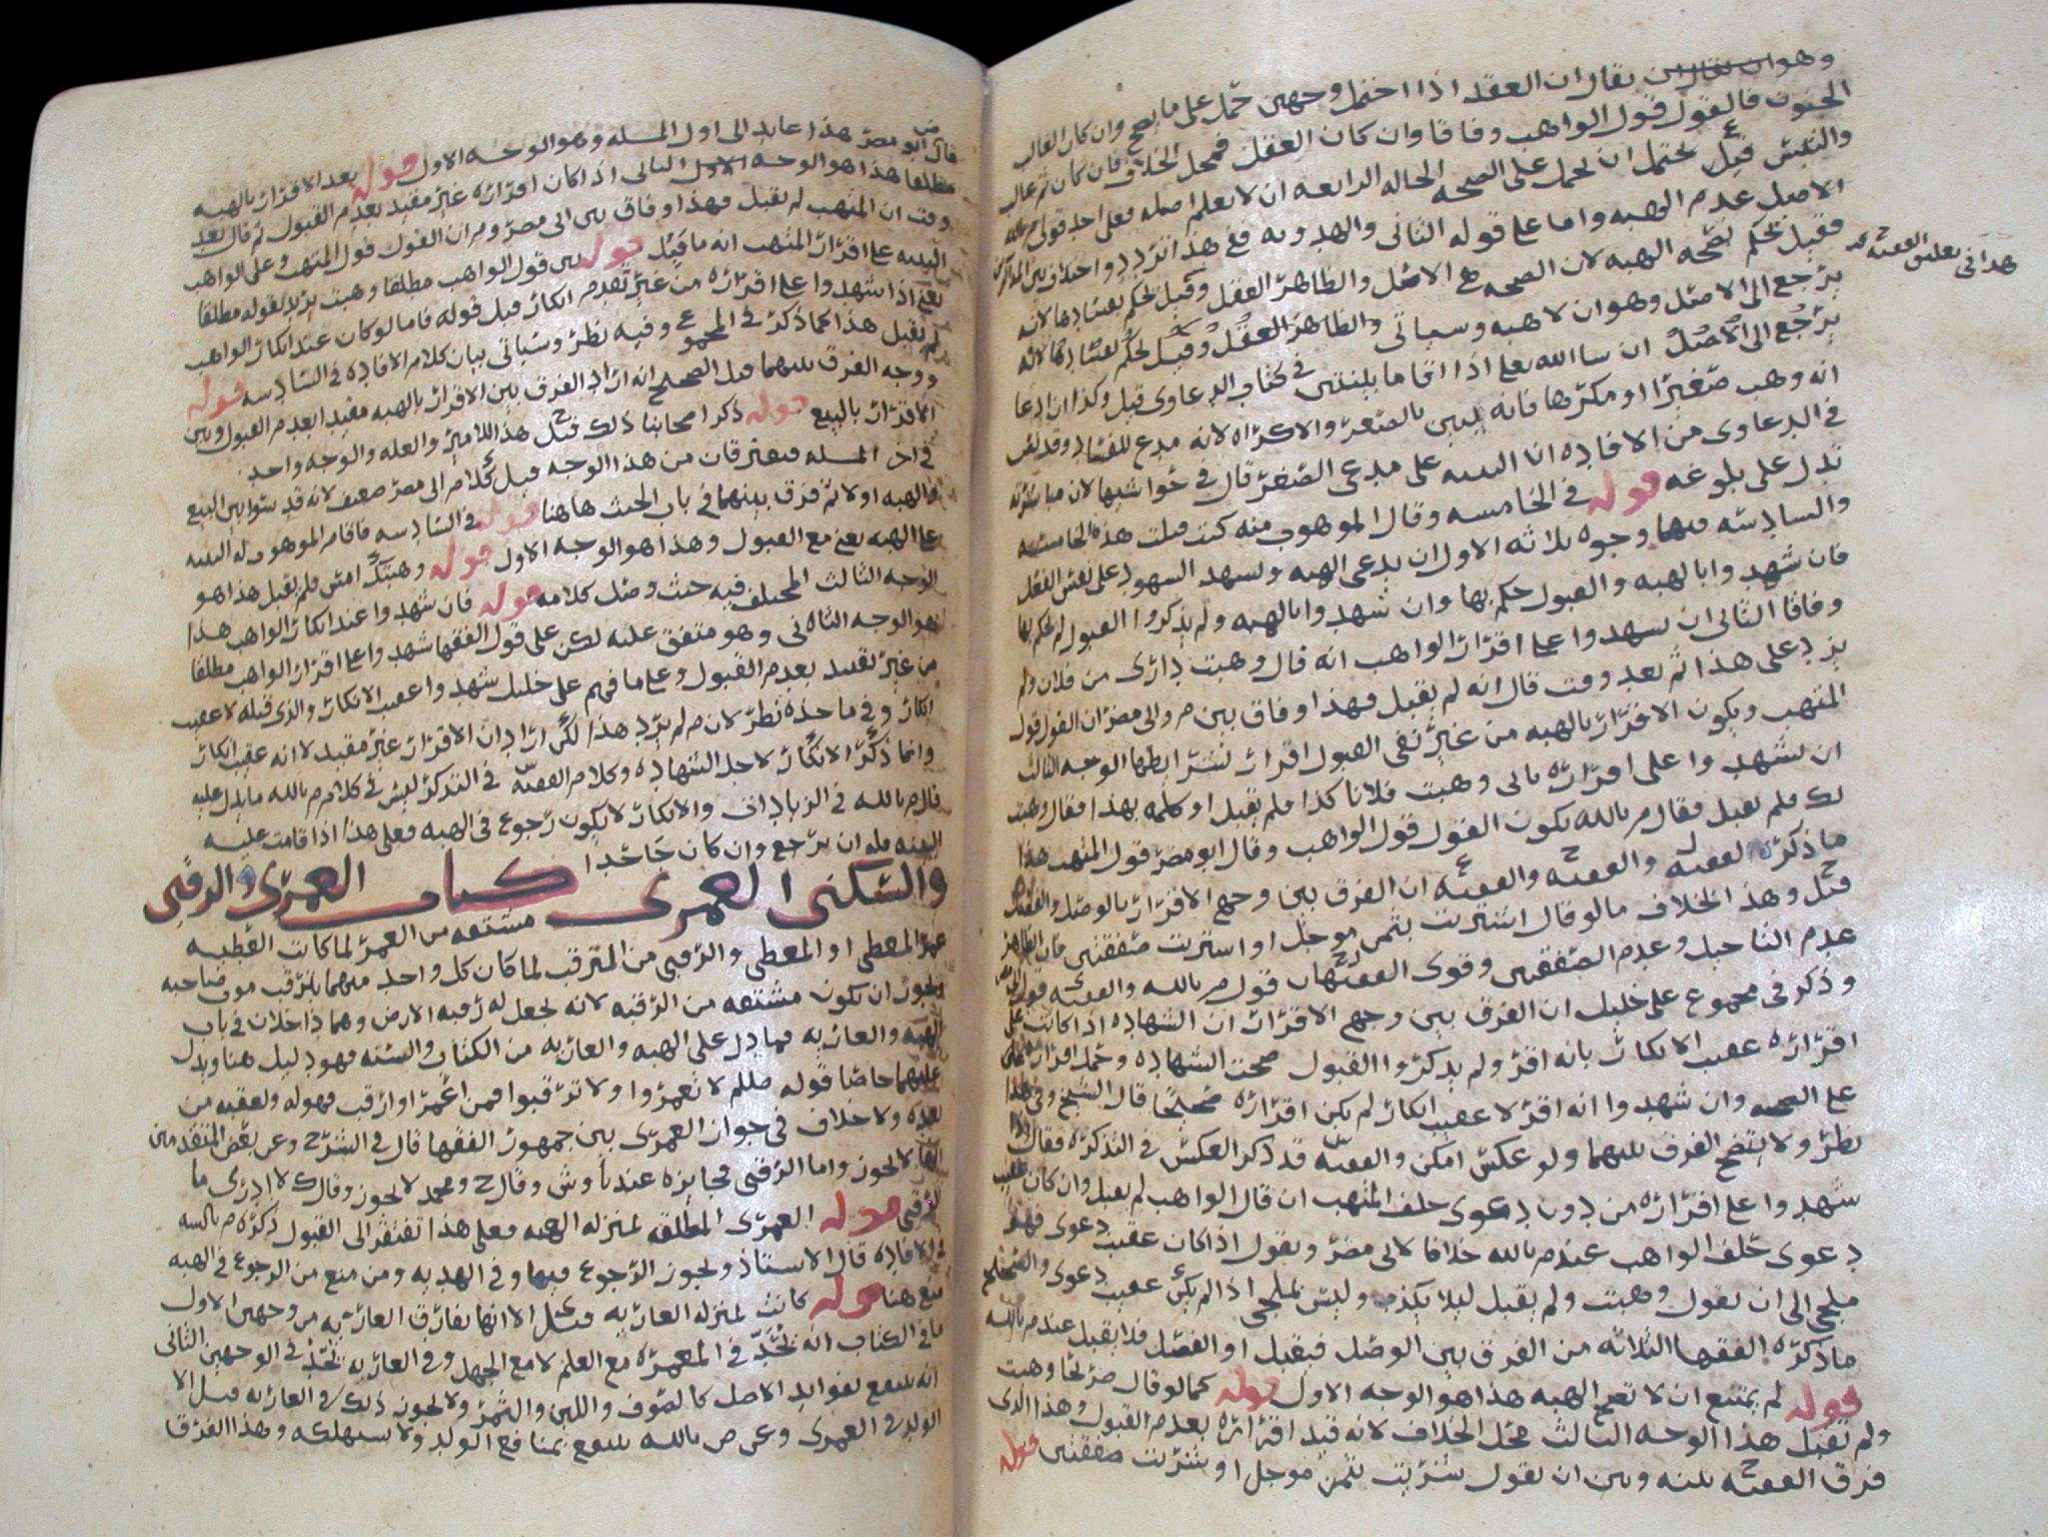 وهو ان يقال ان العقد اذا احتمل وجهين حمل على ما يصح وان كان الغالب
الجنون فالقول قول الواهب وفاقا وان كان العقل فمحل الخلاف فان كان ثم غالب
والتبس قيل يحتمل ان يحمل على الصحه الحاله الرابعه ان لا يعلم اصله فعلى احد قولي م بالله
الاصل عدم الهبه واما على قوله الثاني والهدويه ففي هذا تردد واختلاف بين المذاكرين
فقيل يحكم بصحه الهبه لان الصحه هي الاصل والظاهر العقل وقيل يحكم بفسادها لانه
هذا في تعليق الفقيه
يرجع الى الاصل وهو ان لا هبه وسياتي والظاهر العقل وقيل يحكم بفسادها لانه
يرجع الى الاصل ان سا الله تعالى اذا اقاما بينتين في كتاب الدعاوى قيل وكذا ان ادعا
انه وهب صغيرا او مكرها فانه يبين بالصغر والاكراه لانه مدع للفساد وقد
في الدعاوى من الافاده ان البينه على مدعي الصغر قال في حواشيها لان مباشرته
تدل على بلوغه قوله في الخامسه وقال الموهوب منه كنت قبلت هذه الخامسه
والسادسه فيها وجوه ثلاثه الاول ان يدعى الهبه ويشهد الشهود على نفس العقد
فان شهدوا بالهبه والقبول حكم بها وان شهدوا بالهبه ولم يذكروا القبول لم يحكم بها
وفاقا الثاني ان يشهدوا على اقرار الواهب انه قال وهبت داري من فلان ولم
يزد على هذا ثم بعد وقت قال انه لم يقبل فهذا وفاق بين م وابي مضر ان القول قول
المتهب ويكون الاقرار بالهبه من غير نفي القبول اقرار بشرايطها الوجه الثالث
ان يشهدوا على اقراره باني وهبت فلانا كذا فلم يقبل او كلمه بهذا فقال وهبت
لك فلم تقبل فقال م بالله يكون القول قول الواهب وقال ابو مضر قول المتهب هذا
ما ذكره الفقيه والفقيه والفقيه ان الفرق بين وجهي الاقرار بالوصل والفصل
قيل وهذا الخلاف ما لو قال اشتريت بثمن موجل او اشتريت صفقتين فان الظاهر
عدم التاجيل وعدم الصفقتين وقوى الفقيه قول م بالله والفقيه قول ابي مضر
وذكر في مجموع علي خليل ان الفرق بين وجهي الاقرار ان الشهاده اذا كانت على
اقراره عقيب الانكار بانه اقر ولم يذكروا القبول صحت الشهاده وحمل اقراره
على الصحه وان شهدوا انه اقر لا عقيب انكار لم يكن اقراره صحيحا قال الشيخ وفي هذا
نظر ولا يتضح الفرق بينهما ولو عكس امكن والفقيه قد ذكر العكس في التذكره فقال
شهدوا على اقراره من دون دعوى حلف المتهب ان قال الواهب لم يقبل وان كان عقيب
دعوى حلف الواهب عند م بالله خلافا لابي مضر ونقول اذا كان عقيب دعوى فهو
ملجى الى ان يقول وهبت ولم يقبل ليلا يكذب وليس بملجى اذا لم يكن عقيب دعوى والصحيح
ما ذكره الفقها الثلاثه من الفرق بين الوصل فيقبل او الفصل فلا يقبل عند م بالله
قوله لم يمتنع ان لا تصح الهبه هذا هو الوجه الاول قوله كما لو قال صريحا وهبت
ولم تقبل هذا الوجه الثالث محل الخلاف لانه قيد اقراره بعدم القبول وهذا الذى
فرق الفقيه بينه وبين ان يقول شريت بثمن موجل او شريت صفقتين قوله
قال ابو مضر هذا عايد الى اول المسله وهو الوجه الاول قوله بعد الاقرار بالهبه
مطلقا هذا هو الوجه الاول الثاني اذا كان اقراره غير مقيد بعدم القبول ثم قال بعد
وقت ان المتهب لم يقبل فهذا وفاق بين ابي مضر وم ان القول قول المتهب وعلى الواهب
البينه على اقرار المتهب انه ما قبل قوله بين قول الواهب مطلقا وهبت يريد بقوله مطلقا
يعني اذا شهدوا على اقراره من غير تقدم انكار قبل قوله فاما لو كان عند انكار الواهب
لم يقبل هذا كما ذكر في المجموع وفيه نظر وسياتي بيان كلام الافاده في السادسه قوله
ووجه الفرق بينهما قيل الصحيح انه اراد الفرق بين الاقرار بالهبه مقيدا بعدم القبول وبين
الاقرار بالبيع قوله ذكر اصحابنا ذلك قيل هذا اللامين والعله والوجه واحد
في اخر المسله فيفترقان من هذا الوجه قيل كلام ابي مضر ضعيف لانه قد سوا بين البيع
والهبه اولا ثم فرق بينهما في باب الحنث هاهنا قوله في السادسه فاقام الموهوب له البينه
على الهبه يعني مع القبول وهذا هو الوجه الاول قوله وهبتك امس فلم تقبل هذا هو
الوجه الثالث المختلف فيه حيث وصل كلامه قوله فان شهدوا عند انكار الواهب هذا
هو الوجه الثاني وهو متفق عليه لكن على قول الفقها شهدوا على اقرار الواهب مطلقا
من غير تقييد بعدم القبول وعلى ما فهم علي خليل شهدوا عقيب الانكار والذي قبله لا عقيب
انكار وفي ما خذه نظر لان م لم يرد هذا لكن اراد ان الاقرار غير مقيد لا انه عقيب انكار
وانما ذكر الانكار لاجل الشهاده وكلام الفقيه في التذكره ليس في كلام م بالله ما يدل عليه
قال م بالله في الزيادات والانكار لا يكون رجوع في الهبه فعلى هذا اذا قامت عليه
البينه فله ان يرجع وان كان جاحدا
كتاب العمرى والرقبى
والسكنى العمرى مشتقه من العمر لما كانت العطيه
عمر المعطي او المعطى والرقبى من الترقب لما كان كل واحد منهما يترقب موت صاحبه
ويجوز ان يكون مشتقه من الرقبه لانه يجعل له رقبه الارض وهما داخلان في باب
الهبه والعاريه فما دل على الهبه والعاريه من الكتاب والسنه فهو دليل هنا ويدل
عليهما خاصا قوله صللم لا تعمروا ولا ترقبوا فمن اعمر او ارقب فهو له ولعقبه من
بعده ولا خلاف في جواز العمرى بين جمهور الفقها قال في الشرح وعن بعض المتقدمين
انها لا تجوز واما الرقبى فجايزه عندنا وش وقال ح ومحمد لا تجوز وقال ك لا ادري ما
الرقبى قوله العمرى المطلقه بمنزله الهبه فعلى هذا تفتقر الى القبول ذكره م بالله
في الافاده قال الاستاذ ويجوز الرجوع فيها وفي الهديه ومن منع من الرجوع في الهبه
منع هنا قوله كانت بمنزله العاريه قيل الا انها تفارق العاريه من وجهين الاول
ما في الكتاب انه يحد في المعمره مع العلم لا مع الجهل وفي العاريه يحد في الوجهين الثاني
انه ينتفع بفوايد الاصل كالصوف واللبن والثمر ولا يجوز ذلك في العاريه قيل الا
الولد في العمرى وعن ص بالله ينتفع بمنافع الولد ولا يستهلكه وهذا الفرق